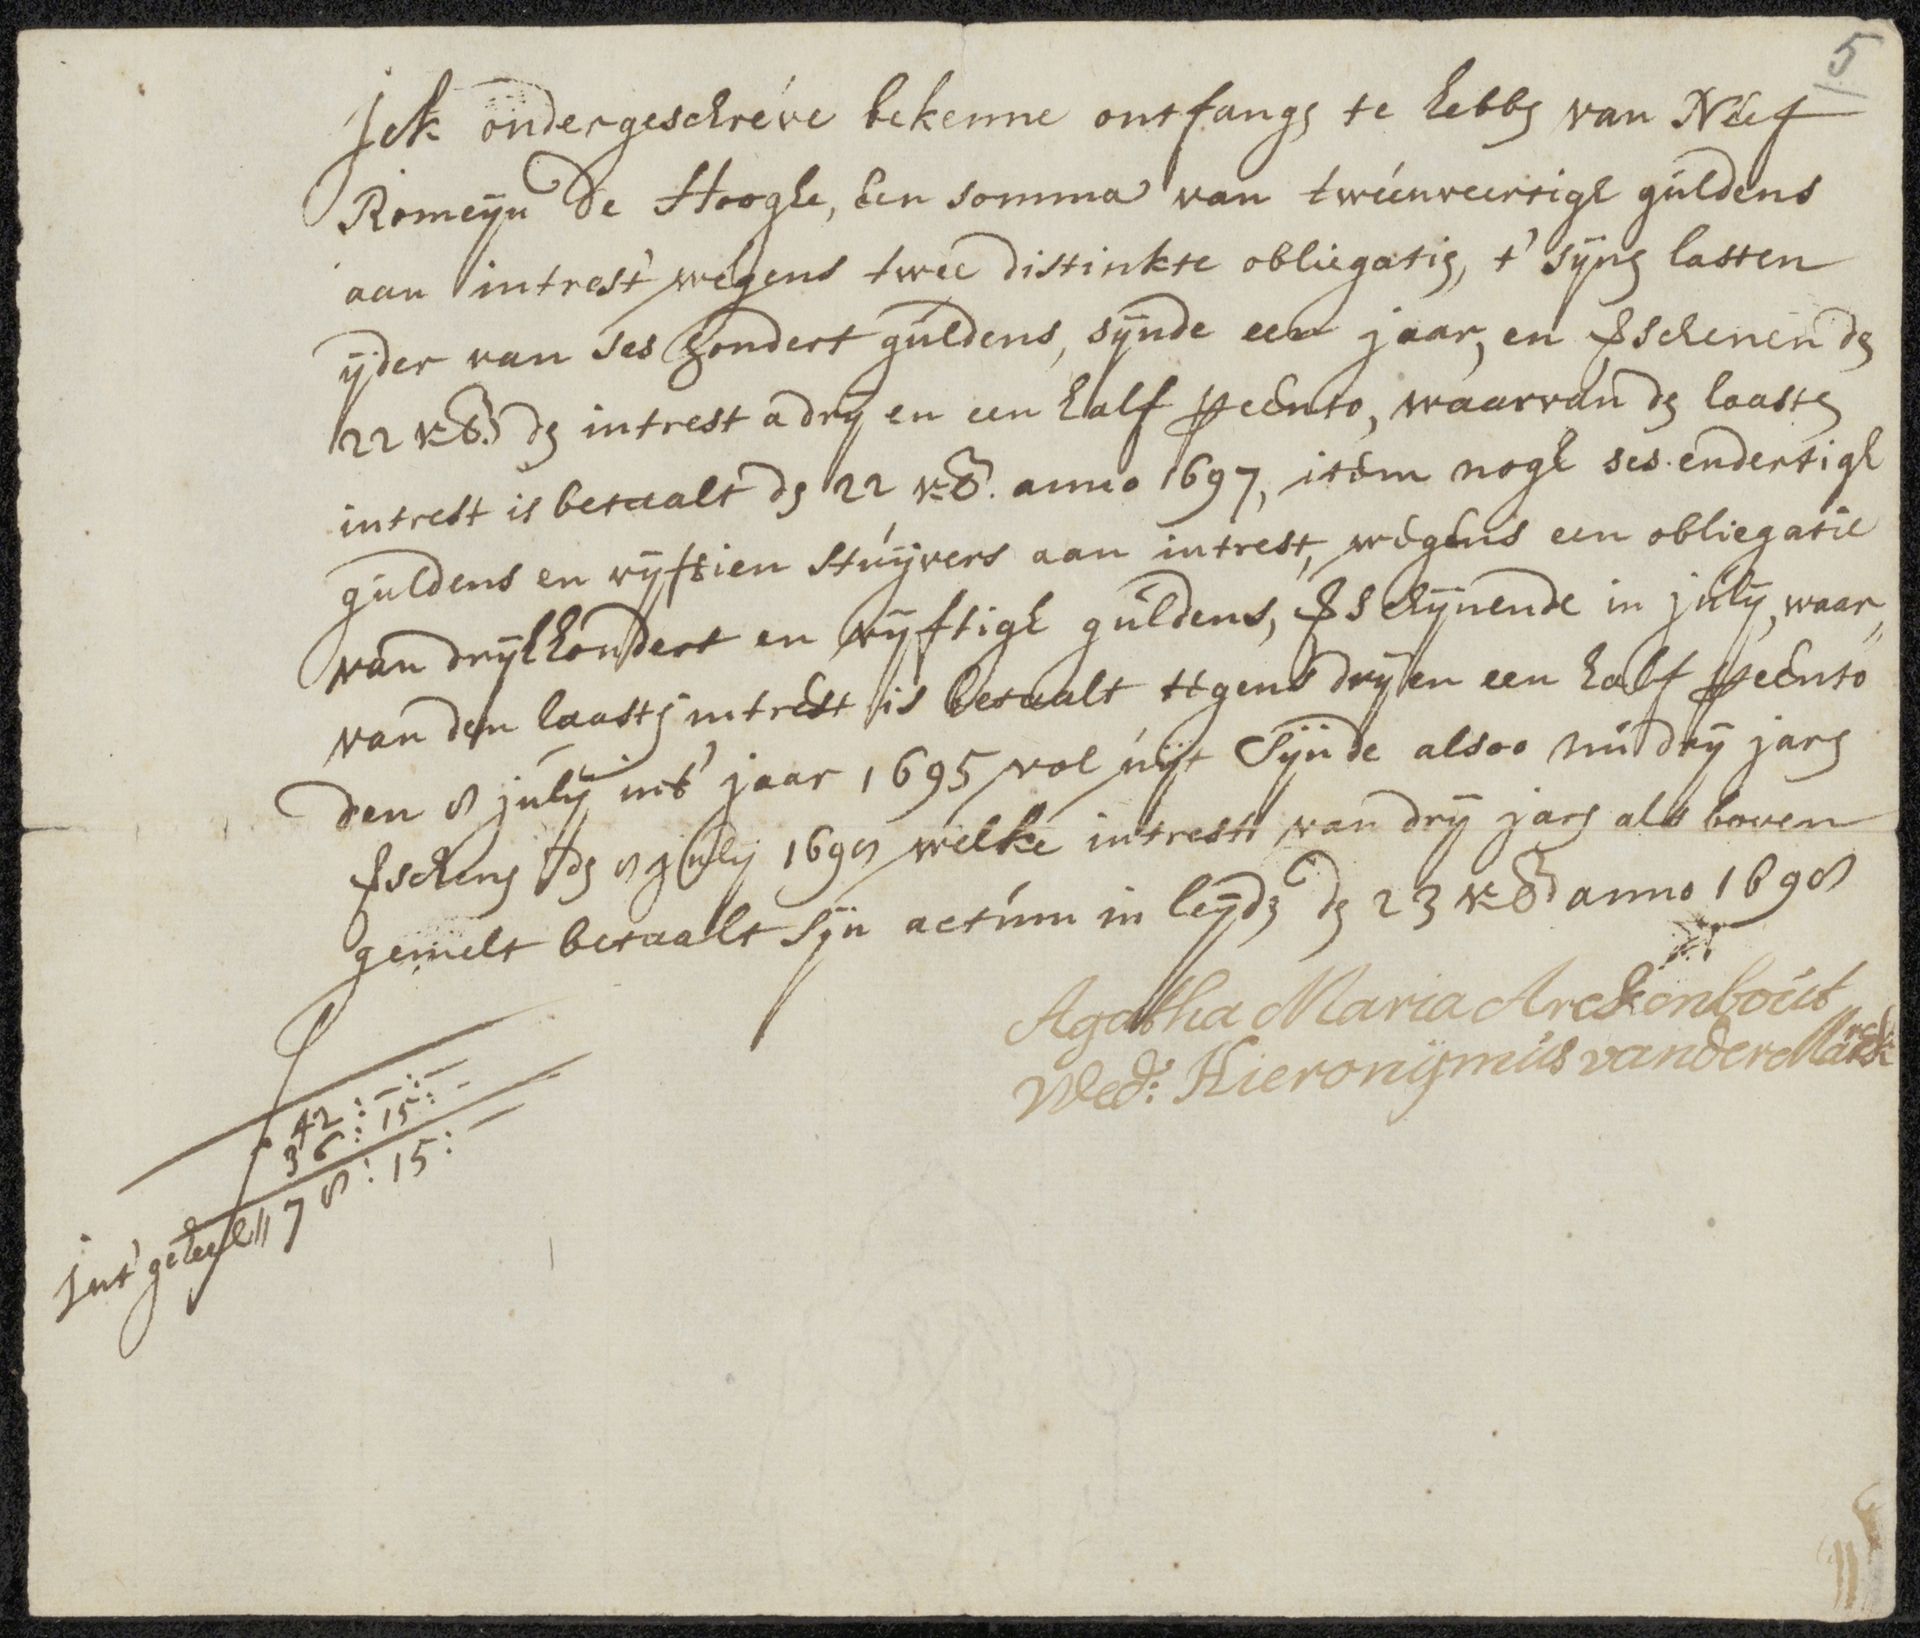 5
Ick ondergeschréve bekenne ontfangen te hebben van Neef
Romeijn de Hooghe, een somma van tweenveertigh guldens
aan intrest wegens twee distinkte obliegatien, t' sijnen lasten
ijder van ses hondert guldens, sijnde een jaar, en verschenen den
22 den intrest a drij en een half percento, waarvan den laasten
intrest is betaalt den 22 anno 1697, item nogh ses endertigh
guldens en vijftien stuijvers aan intrest, wegens een obliegatie
van drijhhondert en vijftigh guldens, verschijnende in julij, waar„
van den laasten intrest is betaalt tegens drij en een half percento
den 8 julij int' jaar 1695 vol uijt sijnde alsoo nu drij jaren
verschenen den 8 july 1698 welke intrest van drij jaren als boven
gemelt betaalt sijn actum in leijden den 23 anno 1698
Agatha Maria Arckenbout
Wed: Hieronijmus vander Marck
42:—:—
36:15:-
Int' geheel// 78:15:—